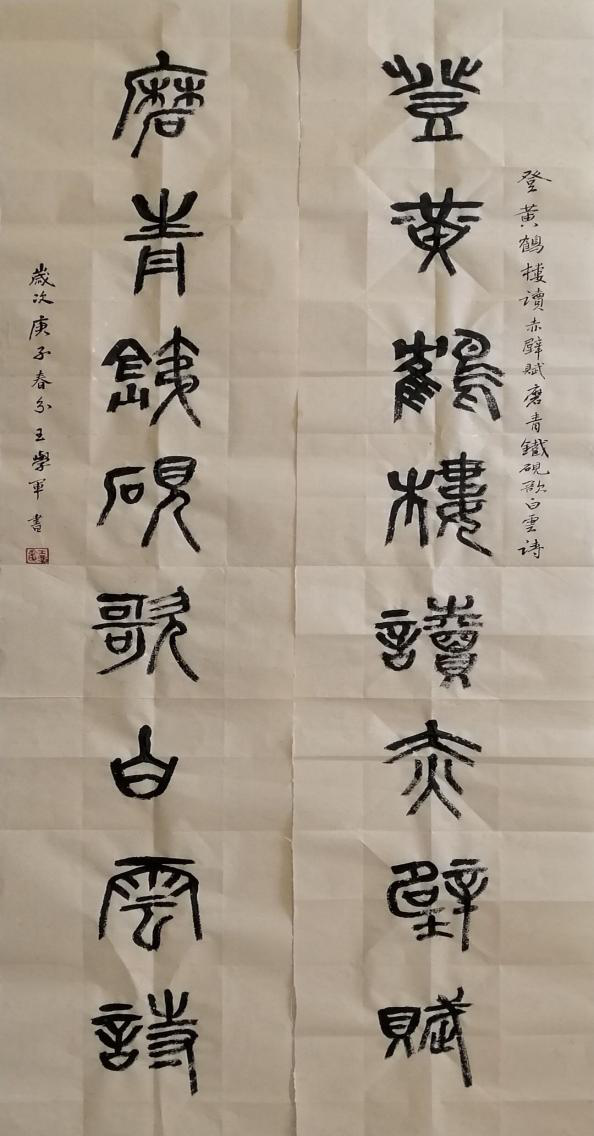 登黄鶴樓讀赤壁賦磨青鐵硯歌白雲詩
登黄鶴樓讀赤壁賦
磨青鐵硯歌白雲詩
歲次庚子春分王學軍書